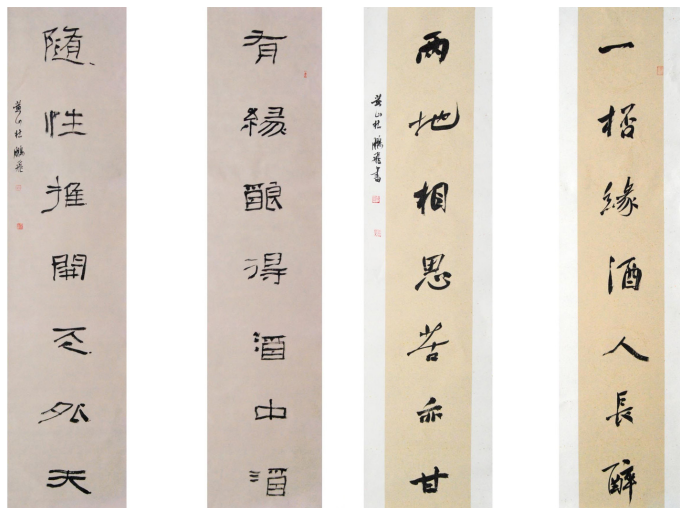 一桮緣酒人長醉
兩地相思苦亦甘
黄山杜鵬飛書
有緣酿得酒中酒
隨性推開天外天
黄山杜鵬飛